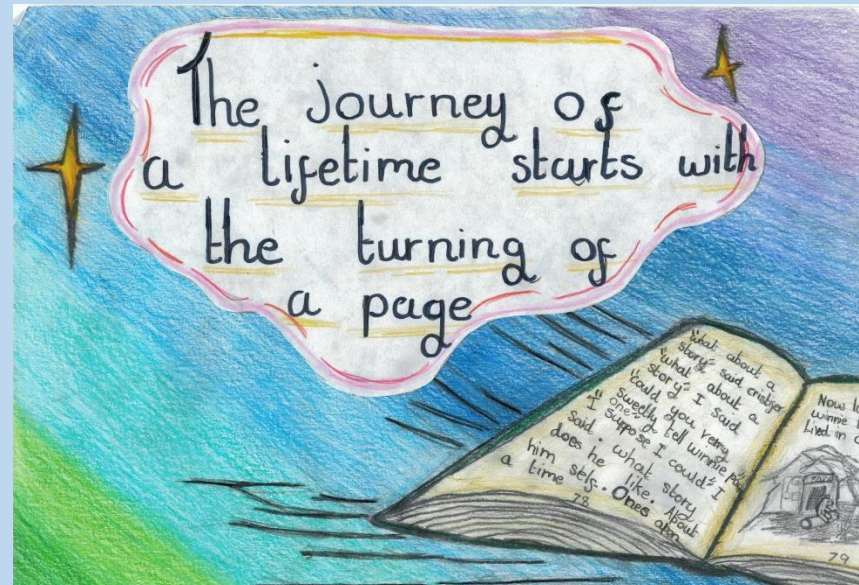 The journey of
a lifetime starts with
the turning of
a page
"What about a
story" said cristifer
"what about a
story" I said
"could you very
sweetly tell winnie pooh
one" "I suppose I could" I
said. what story
does he like. About
him self. Ones apon
a time
78
Now
winnie
Lived in a
79